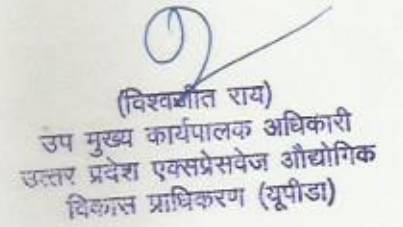 (विश्वजीत राय)
उप मुख्य कार्यपालक अधिकारी
उत्तर प्रदेश एक्सप्रेसवेज औद्योगिक
विकास प्राधिकरण (यूपीडा)